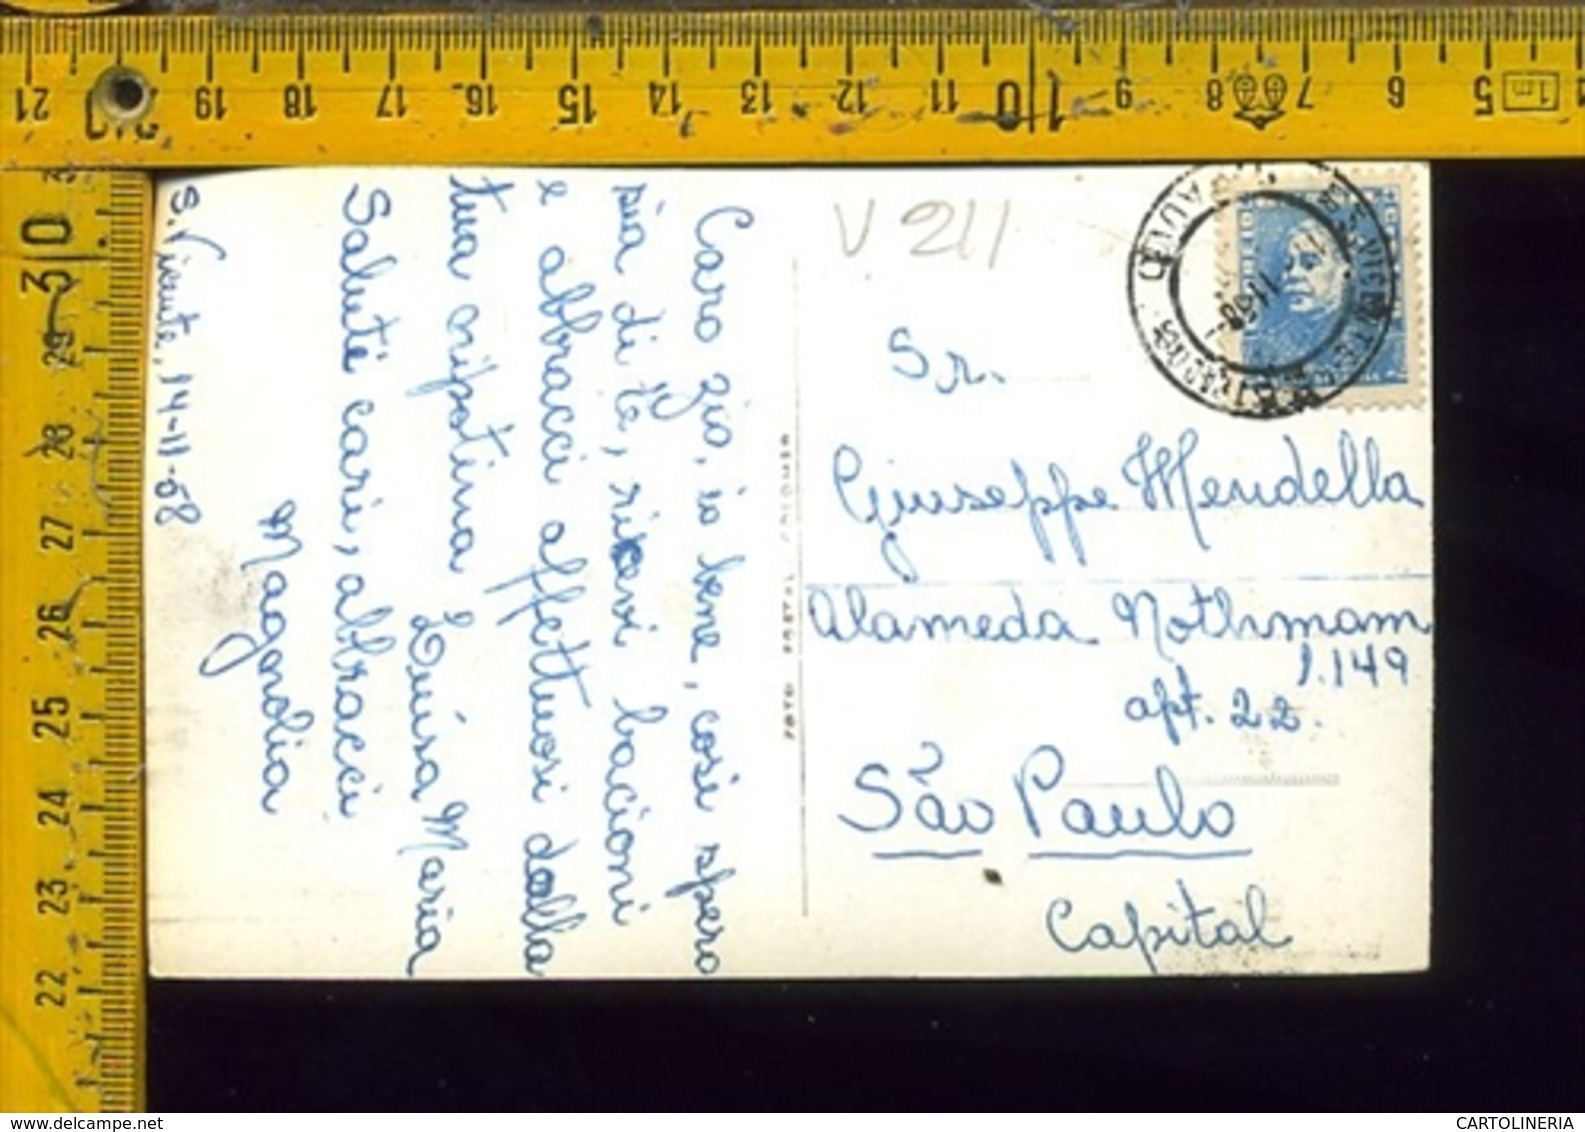 Caro zio, io bene, così spero
sia di te, ricevi bacioni
e abbracci affettuosi dalla
tua nipotina
Luisa Maria
Saluté cari, abbracci
Magnolia
S. Vicente, 14-11-58
V 211
Sr.
Giuseppe Mendella
Alameda Nothmam
1.149
apt. 22.
São Paulo
Capital
FOTO POSTAL COLOMBO
21 20 19 18 17 16 15 14 13 12 11 10 9 8 7 6 5 1m
30 29 28 27 26 25 24 23 22
www.delcampe.net
CARTOLINERIA